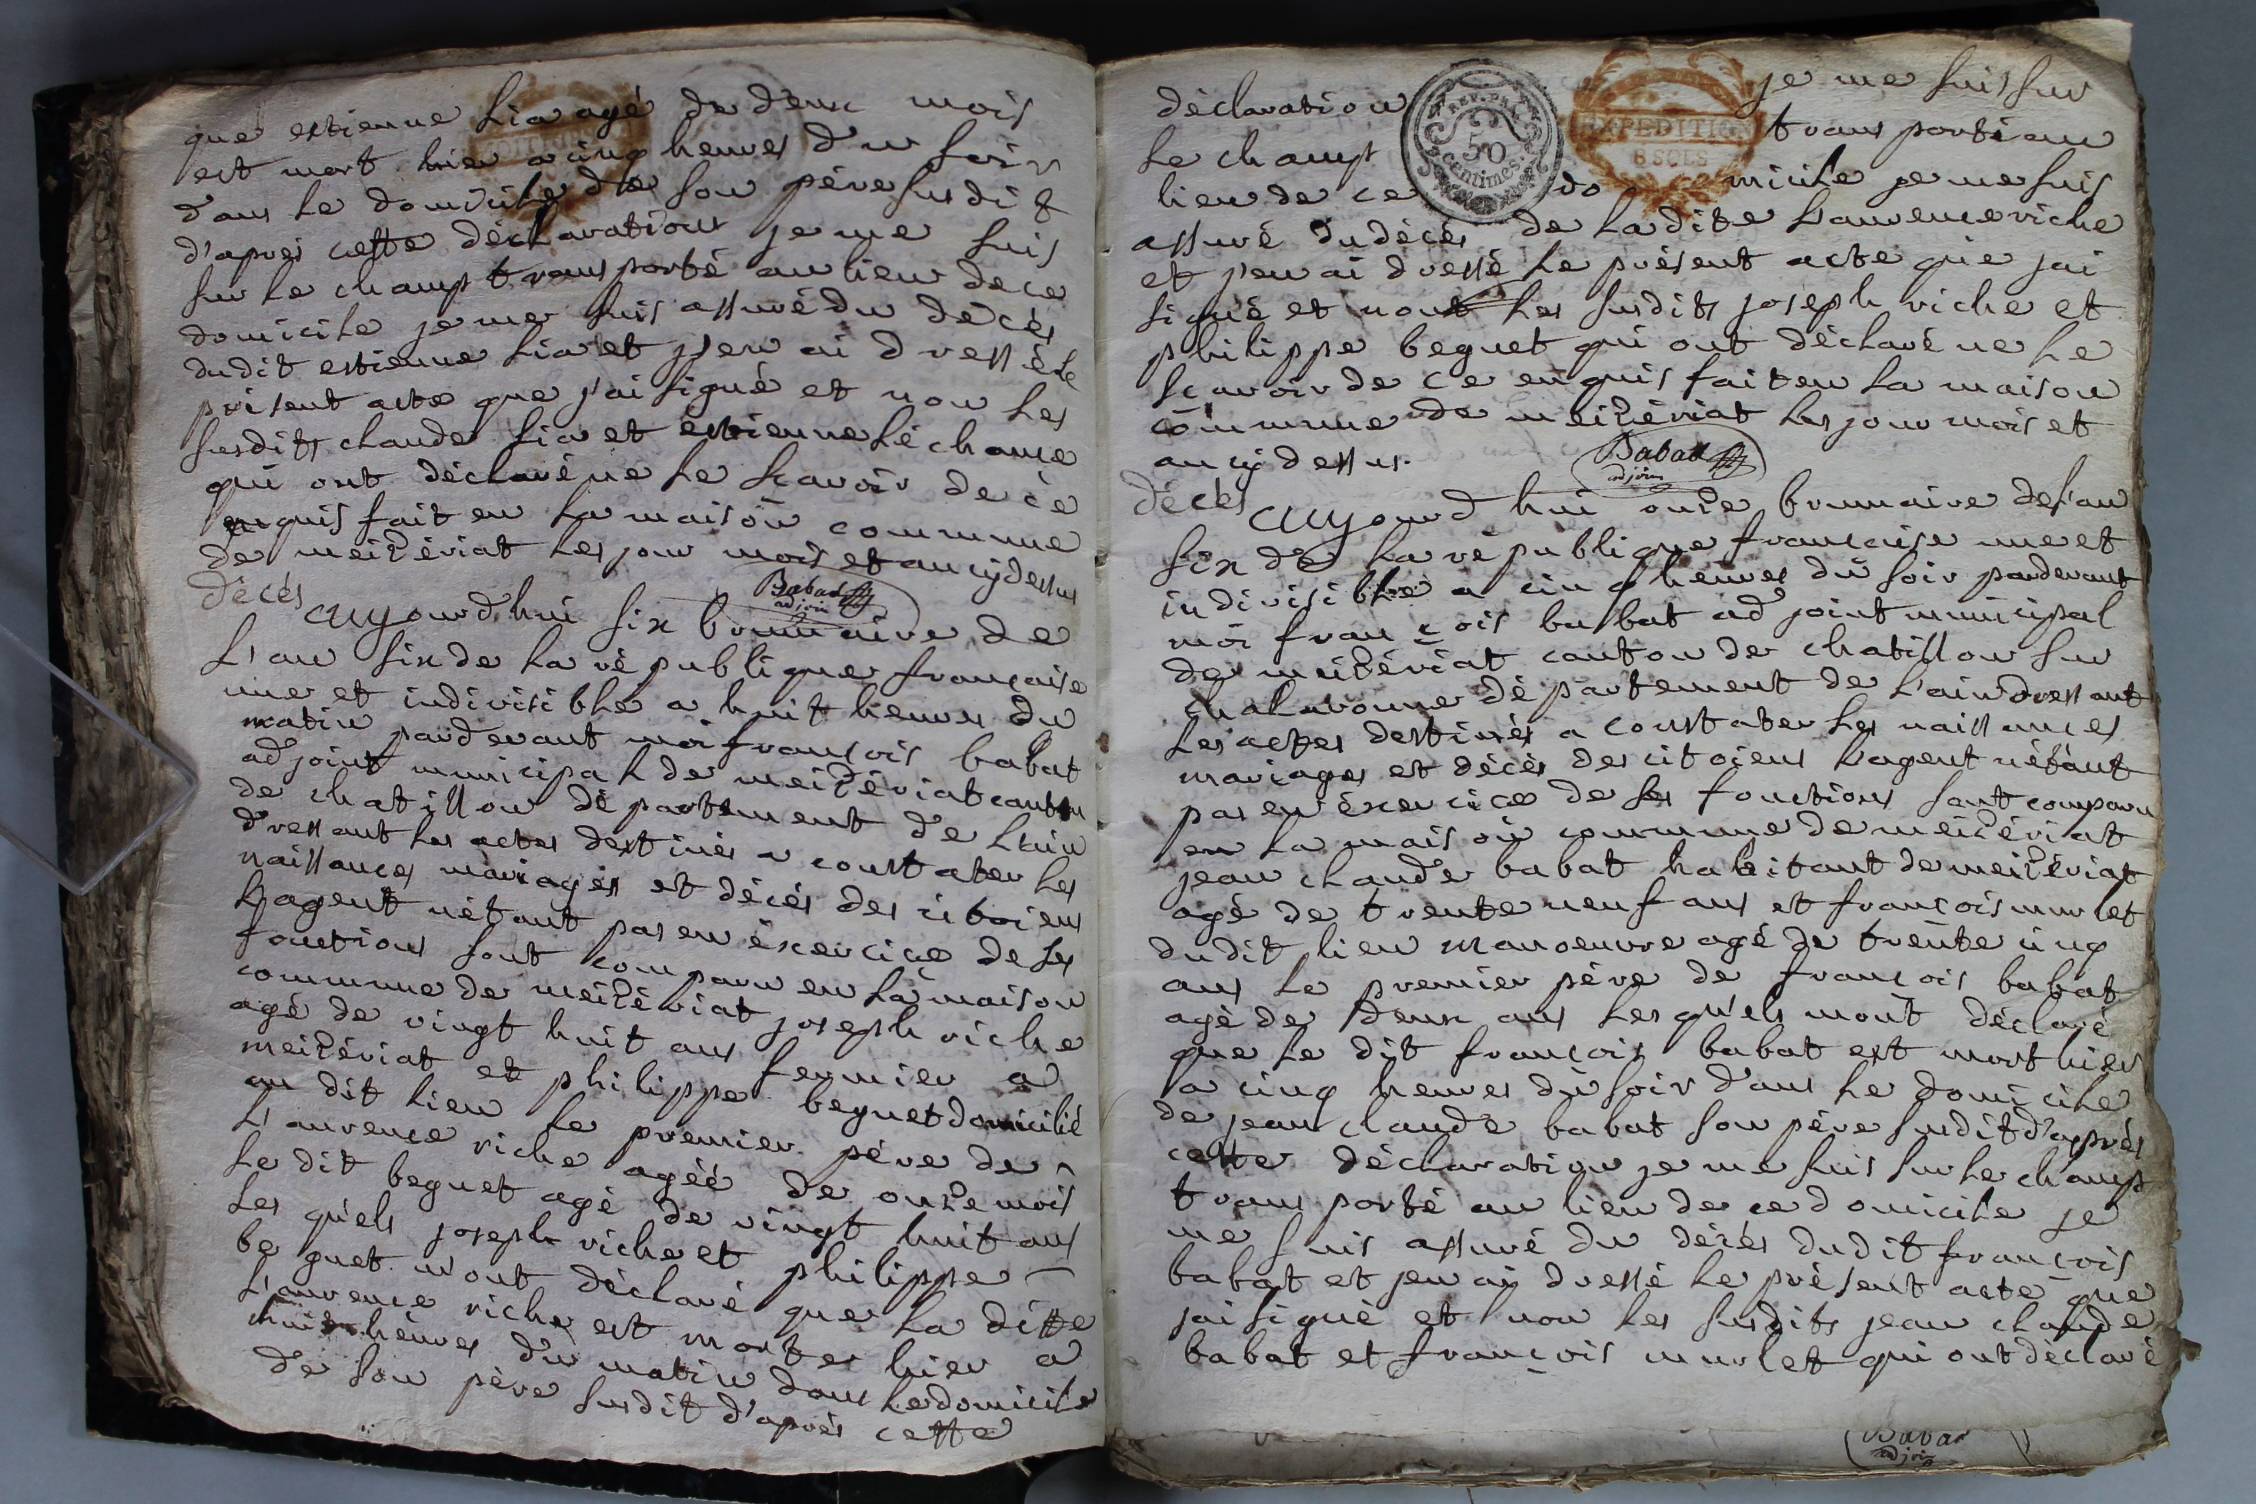 que estienne Lia agé de deux mois
est mort hier a cinq heures du soir
dans le domicile de son pére susdit
d'aprés cette déclaration je me suis
sur le champ transporté au lieu de ce
domicile je me suis assuré du décés
dudit estienne Lia et j'en ai dressé le
présent acte que j'ai signé et non les
susdits claude Lia et estienne Léchange
qui ont déclaré ne le sçavoir de ce
enquis fait en la maison commune
de meizériat les jour mois et an cydessus
Babad
adjoin
décés
aujourd'hui six brumaire de
L'an six de la république française
une et indivisible a huit heures du
matin pardevant moi françois babat
adjoint municipal de meizériat canton
de chatillon département de L'ain
dressant les actes destinés a constater les
naissances mariages et décés des citoiens
L'agent nétant pas en éxercice de ses
fonctions sont comparu en la maison
commune de meizériat joseph riche
agé de vingt huit ans fermier a
meizériat et philippe beguet domicilié
au dit lieu le premier pére de
L'aurence riche agéé de onze mois
le dit beguet agé de vingt huit ans
les quels joseph riche et philippe
beguet m'ont déclaré que la ditte
L'aurence riche est morte hier a
huit heures du matin dans le domicile
de son pére susdit d'aprés cette
déclaration je me suis sur
REP. FRA.
50
centimes.
EXPEDITION
8 SOLS
le champ transporté au
lieu de ce domicile je me suis
assuré du décés de la dite L'aurence riche
et j'en ai dressé le présent acte que jai
signé et non les susdits joseph riche et
philippe beguet qui ont déclaré ne le
sçavoir de ce enquis fait en la maison
commune de meizériat les jour mois et
an cy dessus.
Babad
adjoin
décés
aujourd'hui onze brumaire de l'an
six de la république française une et
indivisible a cinq heures du soir pardevant
moi françois babat adjoint municipal
de meizériat canton de chatillon sur
chalaronne département de L'ain dressant
les actes destinés a constater les naissances
mariages et décés des citoiens L'agent nétant
pas en éxercice de ses fonctions sont comparu
en la maison commune de meizériat
jean claude babat habitant de meizériat
agé de trente neuf ans et françois murlet
dudit lieu manoeuvre agé de trente cinq
ans le premier pére de françois babat
agé de deux ans lesquels mont déclaré
que le dit françois babat est mort hier
a cinq heures du soir dans le domicile
de jean claude babat son pére susdit d'aprés
cette déclaration je me suis sur le champ
transporté au lieu de ce domicile je
me suis assuré du décés dudit françois
babat et jen ai dressé le présent acte que
jai signé et non les susdits jean claude
babat et françois murlet qui ont déclaré
Babad
adjoin